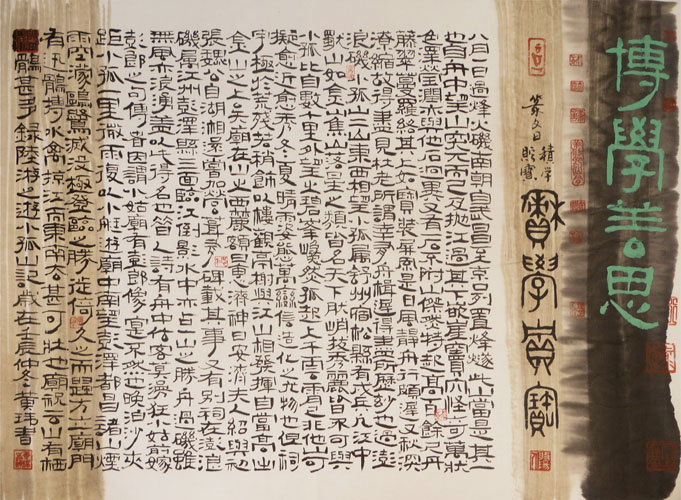 博學善思
賓學賓寶
篆文曰 積學
貯寶
八月一日過烽火磯南朝自武昌至京口列置烽燧此山當是其一
也自舟中望山突兀而已及拋江過其下嵌崖竇穴怪奇萬狀
色澤瑩潤亦與他石迥異又有一石不附山傑然特起高百餘尺丹
藤翠蔓羅絡其上如寶裝屏風是日風靜舟行頗遲又秋深
潦縮故得盡見杜老所謂幸有舟楫遲得盡所歷妙也過澎
浪磯小孤山二山東西相望小孤屬舒州宿松縣有戍兵凡江中
獨山如金山焦山落星之類皆名天下然峭拔秀麗皆不可與
小孤比自數十里外望之碧峰巉然孤起上干雲霄已非他山可
擬愈近愈秀冬夏晴雨姿態萬變信造化之尤物也但祠
宇極於荒殘若稍飾以樓觀亭榭與江山相發揮自當高出
金山之上矣廟在山之西麓額曰惠濟神曰安濟夫人紹興初
張魏公自湖湘還嘗加營葺有碑載其事又有別祠在澎浪
磯屬江州彭澤縣三面臨江倒影水中亦占一山之勝舟過磯雖
無風亦浪湧蓋以此得名也昔人詩有舟中估客莫漫狂小姑前年嫁
彭郎之句傳者因謂小姑廟有彭郎像實不然也晚泊沙夾
距小孤一里微雨復以小艇遊廟中南望彭澤都昌諸山煙
雨空濛鷗鷺滅沒極登臨之勝徙倚久之而歸方立廟門
有俊鶻摶水禽掠江而東南去甚可壯也廟祝云山有棲
鶻甚多錄陸游之遊小孤山記歲在壬辰仲冬黃瑋書